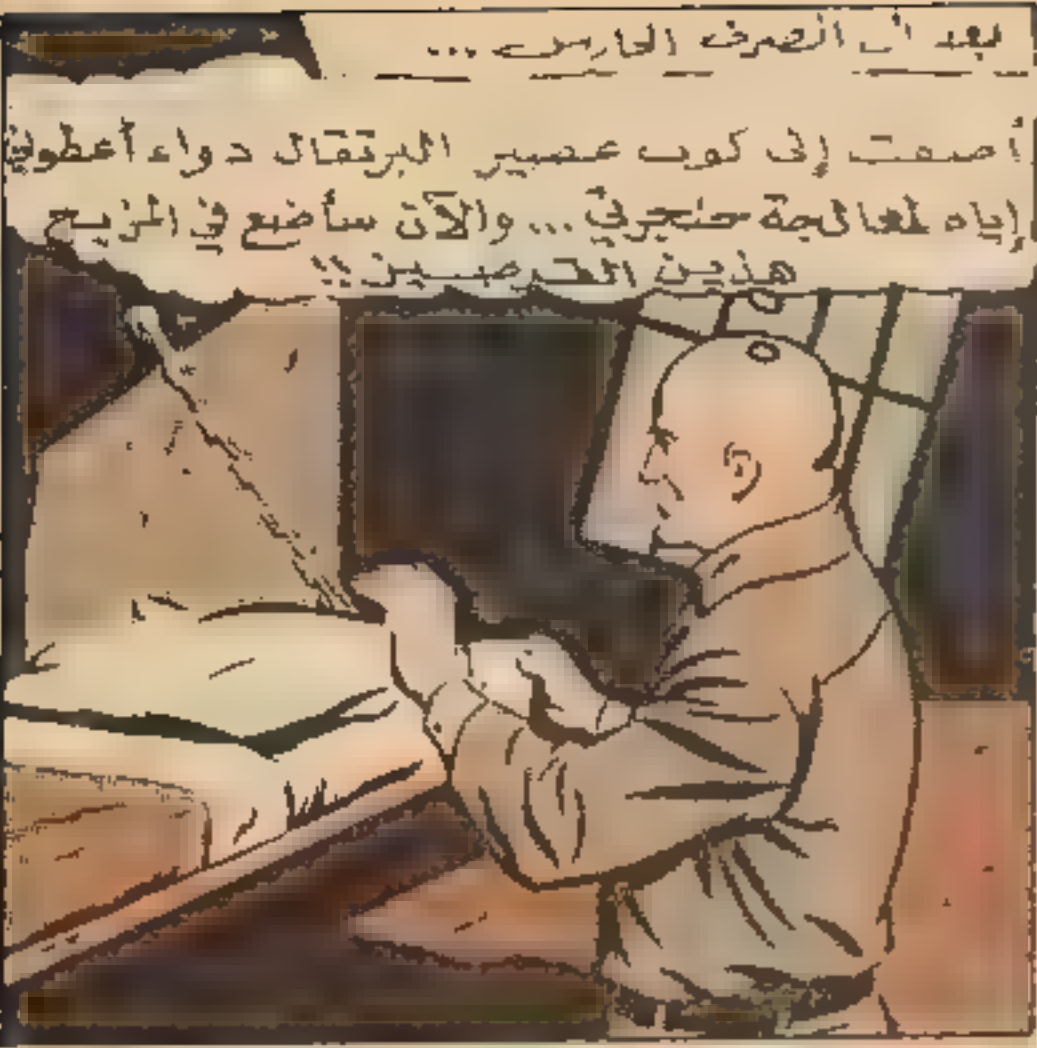 بعد ان انصرف الحارس ...
أضفت إلى كوب عصير البرتقال دواء أعطوني
إياه لمعالجة حنجرتي ... والآن سأضع في المزيج
هذين القرصين !!